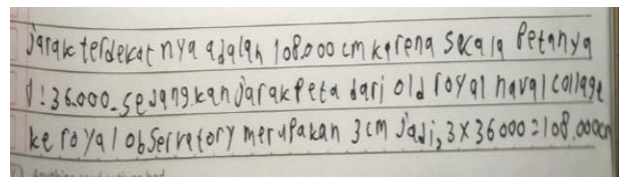 Jarak terdekatnya adalah 108.000 cm karena skala Petanya
1:36.000. sedangkan jarak peta dari old royal naval collage
ke royal observatory merupakan 3 cm Jadi, 3 x 36000 = 108.000cm